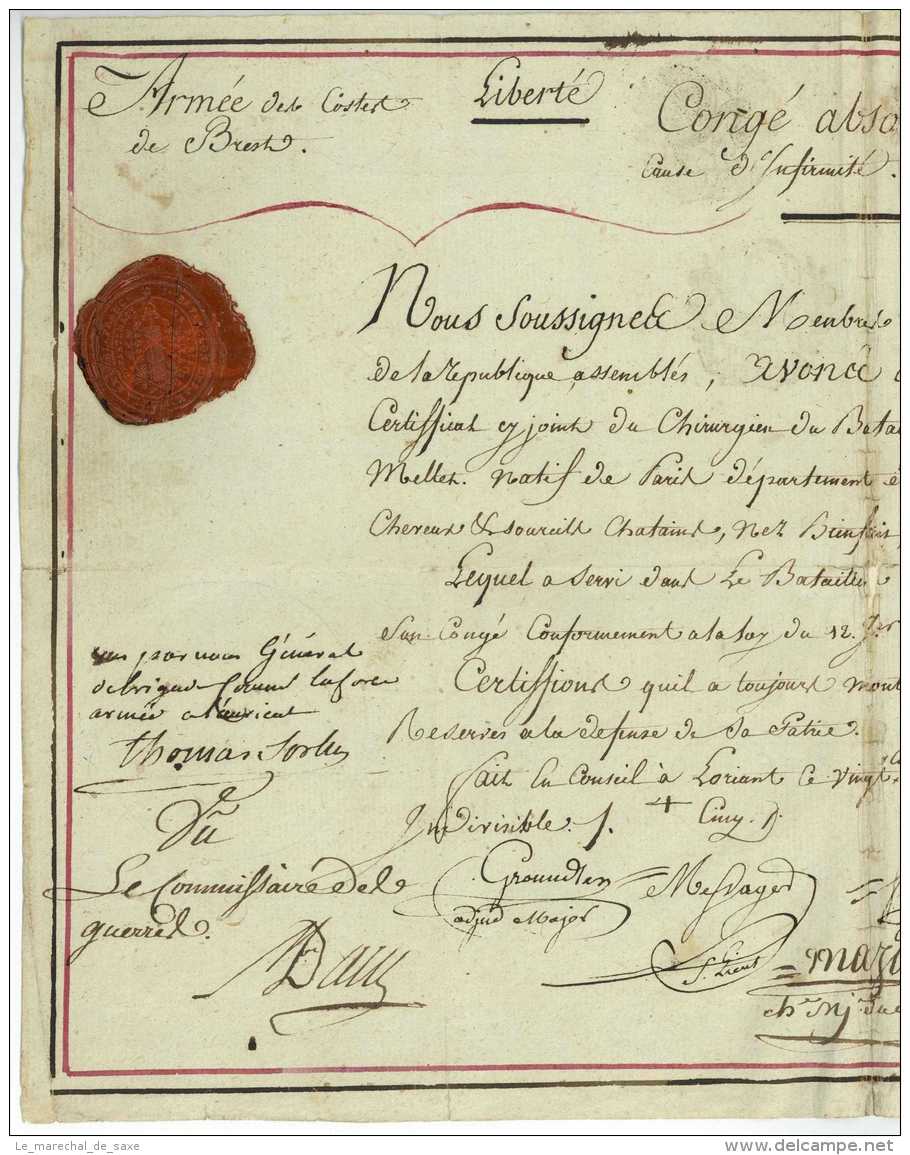 Armée des Costes
de Brest.
Liberté
Congé abso
Cause d'Infirmité.
Nous Soussignés Membres
de la république assemblés, avons
Certiffical cy joint du Chirurgien du Batai
Mellet. natif de Paris département
Cheveux & sourcils Chatains, Nez Bienfait
Lequel a servi dans Le Bataillon
Son Congé Conformement a la loy du 12. 7.bre
Certiffions quil a toujours mont
Reserves a la defense de Sa Patrie.
fait En Conseil à Loriant Ce Vingt
Indivisible ./. Cinq
vu par nous Général
de brigade Comm.t la force
armée a laurient
Thomas
Vu
Le Commissaire des
guerres.
adjud Major
Messager
S. Lieut
ch.n Mj.r du
Le_marechal_de_saxe
www.delcampe.net